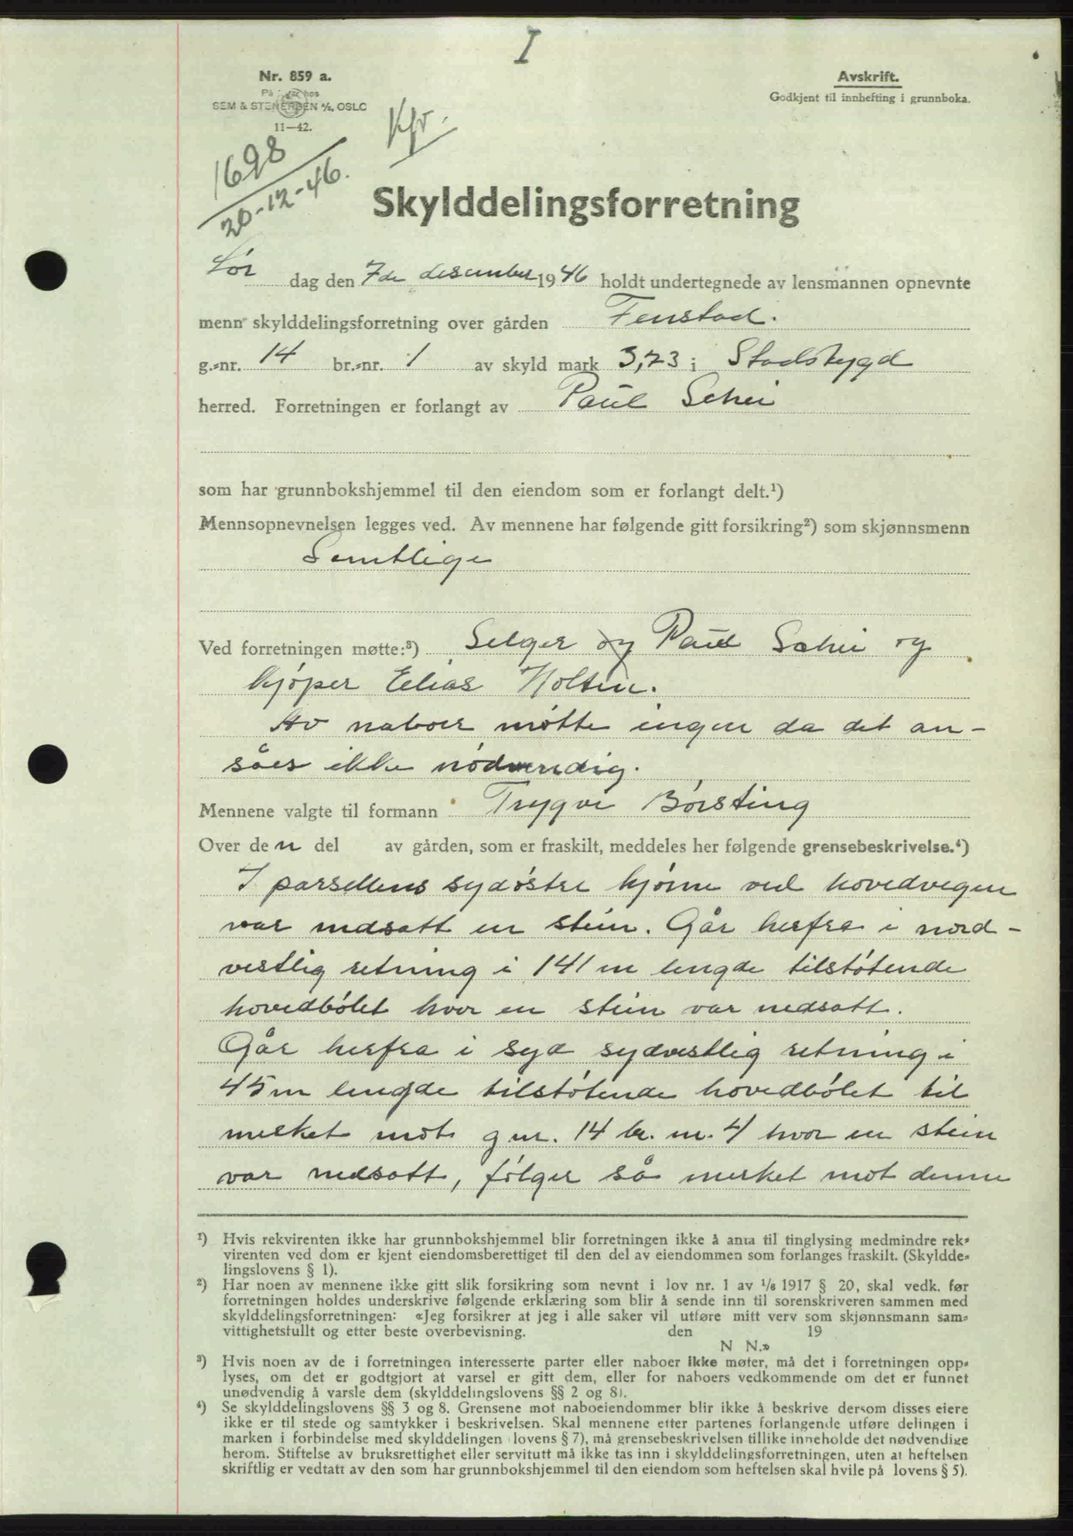 I
Nr. 859 a.
Avskrift.
Godkjent til innhefting i grunnboka.
SEM & STENERSEN A/S, OSLO
11—42.
Kfr.
1698
20-12-46.
Skylddelingsforretning
Lør dag den 7de desember 1946 holdt undertegnede av lensmannen opnevnte
menn skylddelingsforretning over gården Fenstad.
g.-nr. 14 br.-nr. 1 av skyld mark 3,73 i Stadsbygd
herred. Forretningen er forlangt av Paul Schei
som har grunnbokshjemmel til den eiendom som er forlangt delt.¹)
Mennsopnevnelsen legges ved. Av mennene har følgende gitt forsikring²) som skjønnsmenn
Samtlige
Ved forretningen møtte:³) Selger og Paul Schei og
kjøper Elias Holten.
Av naboer møtte ingen da det an-
såes ikke nødvendig.
Mennene valgte til formann Trygve Børsting
Over den del av gården, som er fraskilt, meddeles her følgende grensebeskrivelse.⁴)
I parsellens sydøstre hjørne ved hovedvegen
var nedsatt en stein. Går herfra i nord-
vestlig retning i 141 m lengde tilstøtende
hovedbølet hvor en stein var nedsatt.
Går herfra i syd sydvestlig retning i
45 m lengde tilstøtende hovedbølet til
merket mot g nr. 14 br. nr. 4 hvor en stein
var nedsatt, følger så merket mot denne
¹) Hvis rekvirenten ikke har grunnbokshjemmel blir forretningen ikke å anta til tinglysing medmindre rek-
virenten ved dom er kjent eiendomsberettiget til den del av eiendommen som forlanges fraskilt. (Skyldde-
lingslovens § 1).
²) Har noen av mennene ikke gitt slik forsikring som nevnt i lov nr. 1 av 1/6 1917 § 20, skal vedk. før
forretningen holdes underskrive følgende erklæring som blir å sende inn til sorenskriveren sammen med
skylddelingsforretningen: «Jeg forsikrer at jeg i alle saker vil utføre mitt verv som skjønnsmann sam-
vittighetsfullt og etter beste overbevisning. den 19
N N.»
³) Hvis noen av de i forretningen interesserte parter eller naboer ikke møter, må det i forretningen opp-
lyses, om det er godtgjort at varsel er gitt dem, eller for naboers vedkommende om det er funnet
unødvendig å varsle dem (skylddelingslovens §§ 2 og 8).
⁴) Se skylddelingslovens §§ 3 og 8. Grensene mot naboeiendommer blir ikke å beskrive dersom disses eiere
ikke er til stede og samtykker i beskrivelsen. Skal mennene etter partenes forlangende utføre delingen i
marken i forbindelse med skylddelingen (lovens § 7), må grensebeskrivelsen tillike inneholde det nødvendige
herom. Stiftelse av bruksrettighet eller servitutt må ikke tas inn i skylddelingsforretningen, uten at heftelsen
skriftlig er vedtatt av den som har grunnbokshjemmel til den eiendom som heftelsen skal hvile på (lovens § 5).